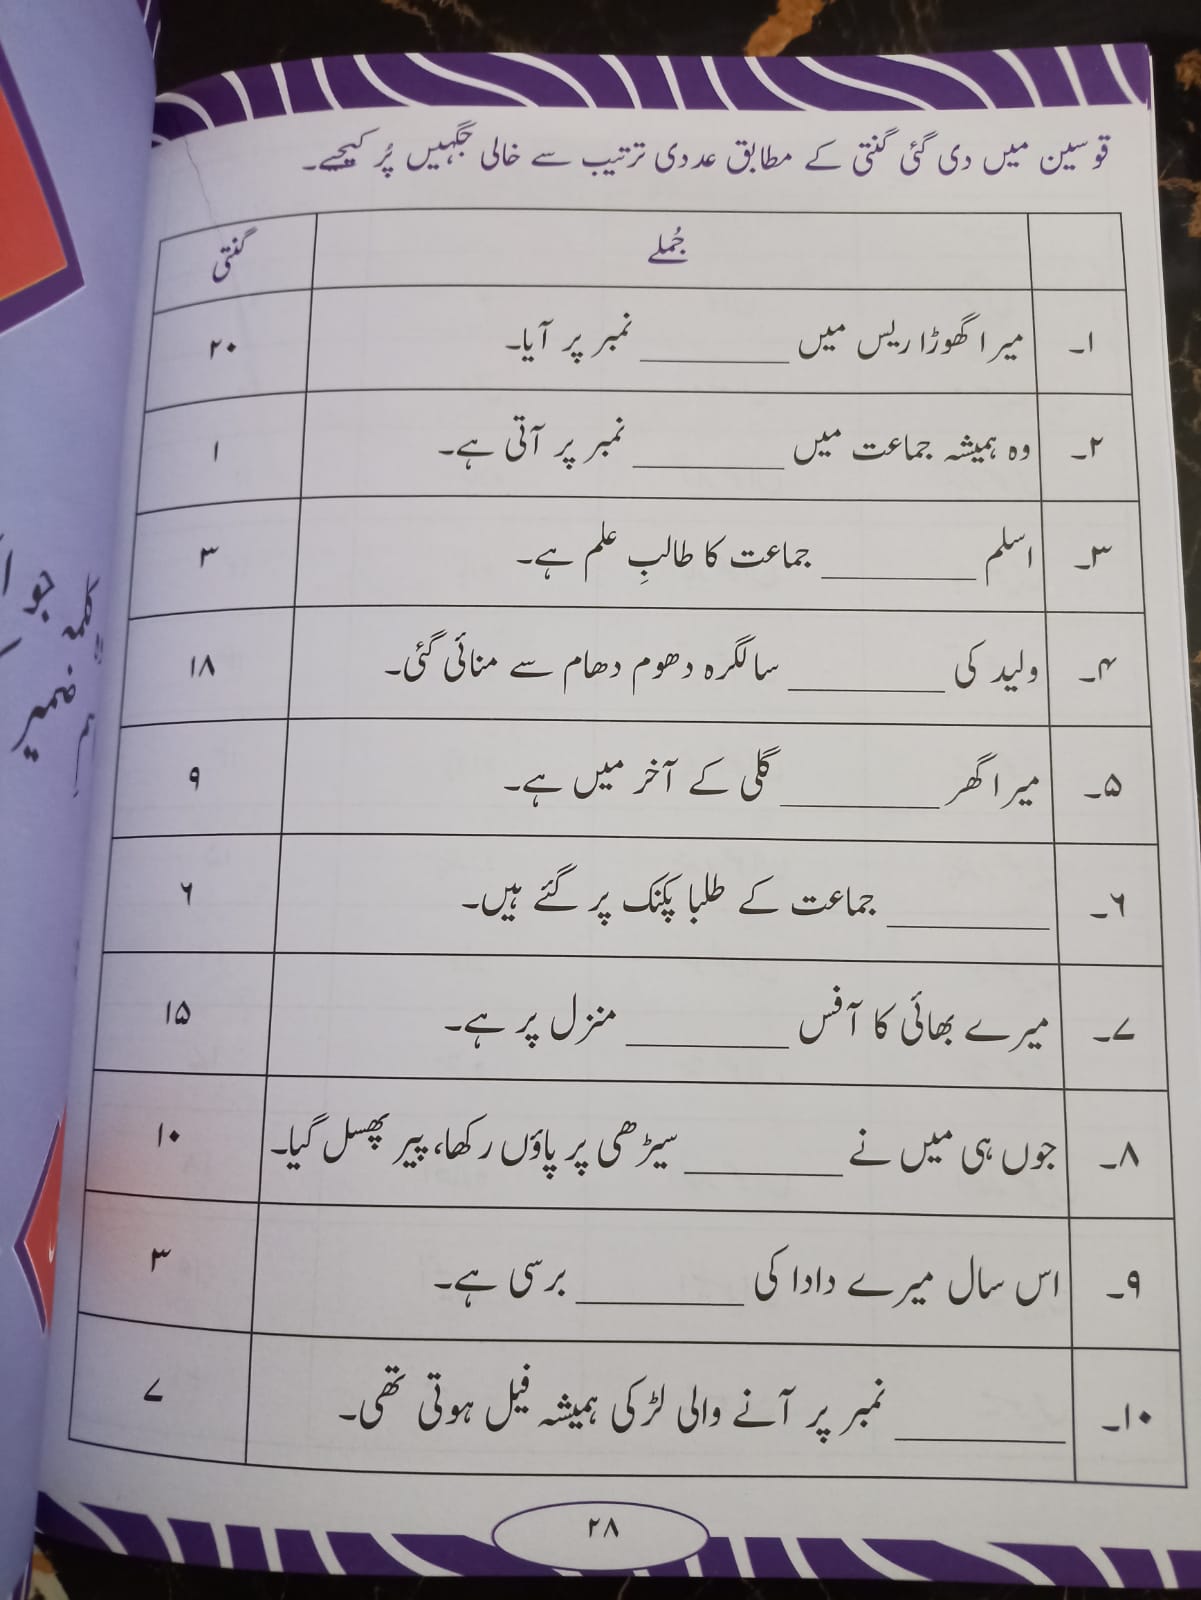 قوسین میں دی گئی گنتی کے مطابق عددی ترتیب سے خالی جگہیں پُر کیجیے۔
جُملے گنتی
۱۔ میرا گھوڑا ریس میں ________ نمبر پر آیا۔ ۲۰
۲۔ وہ ہمیشہ جماعت میں ________ نمبر پر آتی ہے۔ ۱
۳۔ اسلم ________ جماعت کا طالبِ علم ہے۔ ۳
۴۔ ولید کی ________ سالگرہ دھوم دھام سے منائی گئی۔ ۱۸
۵۔ میرا گھر ________ گلی کے آخر میں ہے۔ ۹
۶۔ ________ جماعت کے طلبا پکنک پر گئے ہیں۔ ۶
۷۔ میرے بھائی کا آفس ________ منزل پر ہے۔ ۱۵
۸۔ جوں ہی میں نے ________ سیڑھی پر پاؤں رکھا، پیر پھسل گیا۔ ۱۰
۹۔ اس سال میرے دادا کی ________ برسی ہے۔ ۳
۱۰۔ ________ نمبر پر آنے والی لڑکی ہمیشہ فیل ہوتی تھی۔ ۷
۲۸
ضمیر